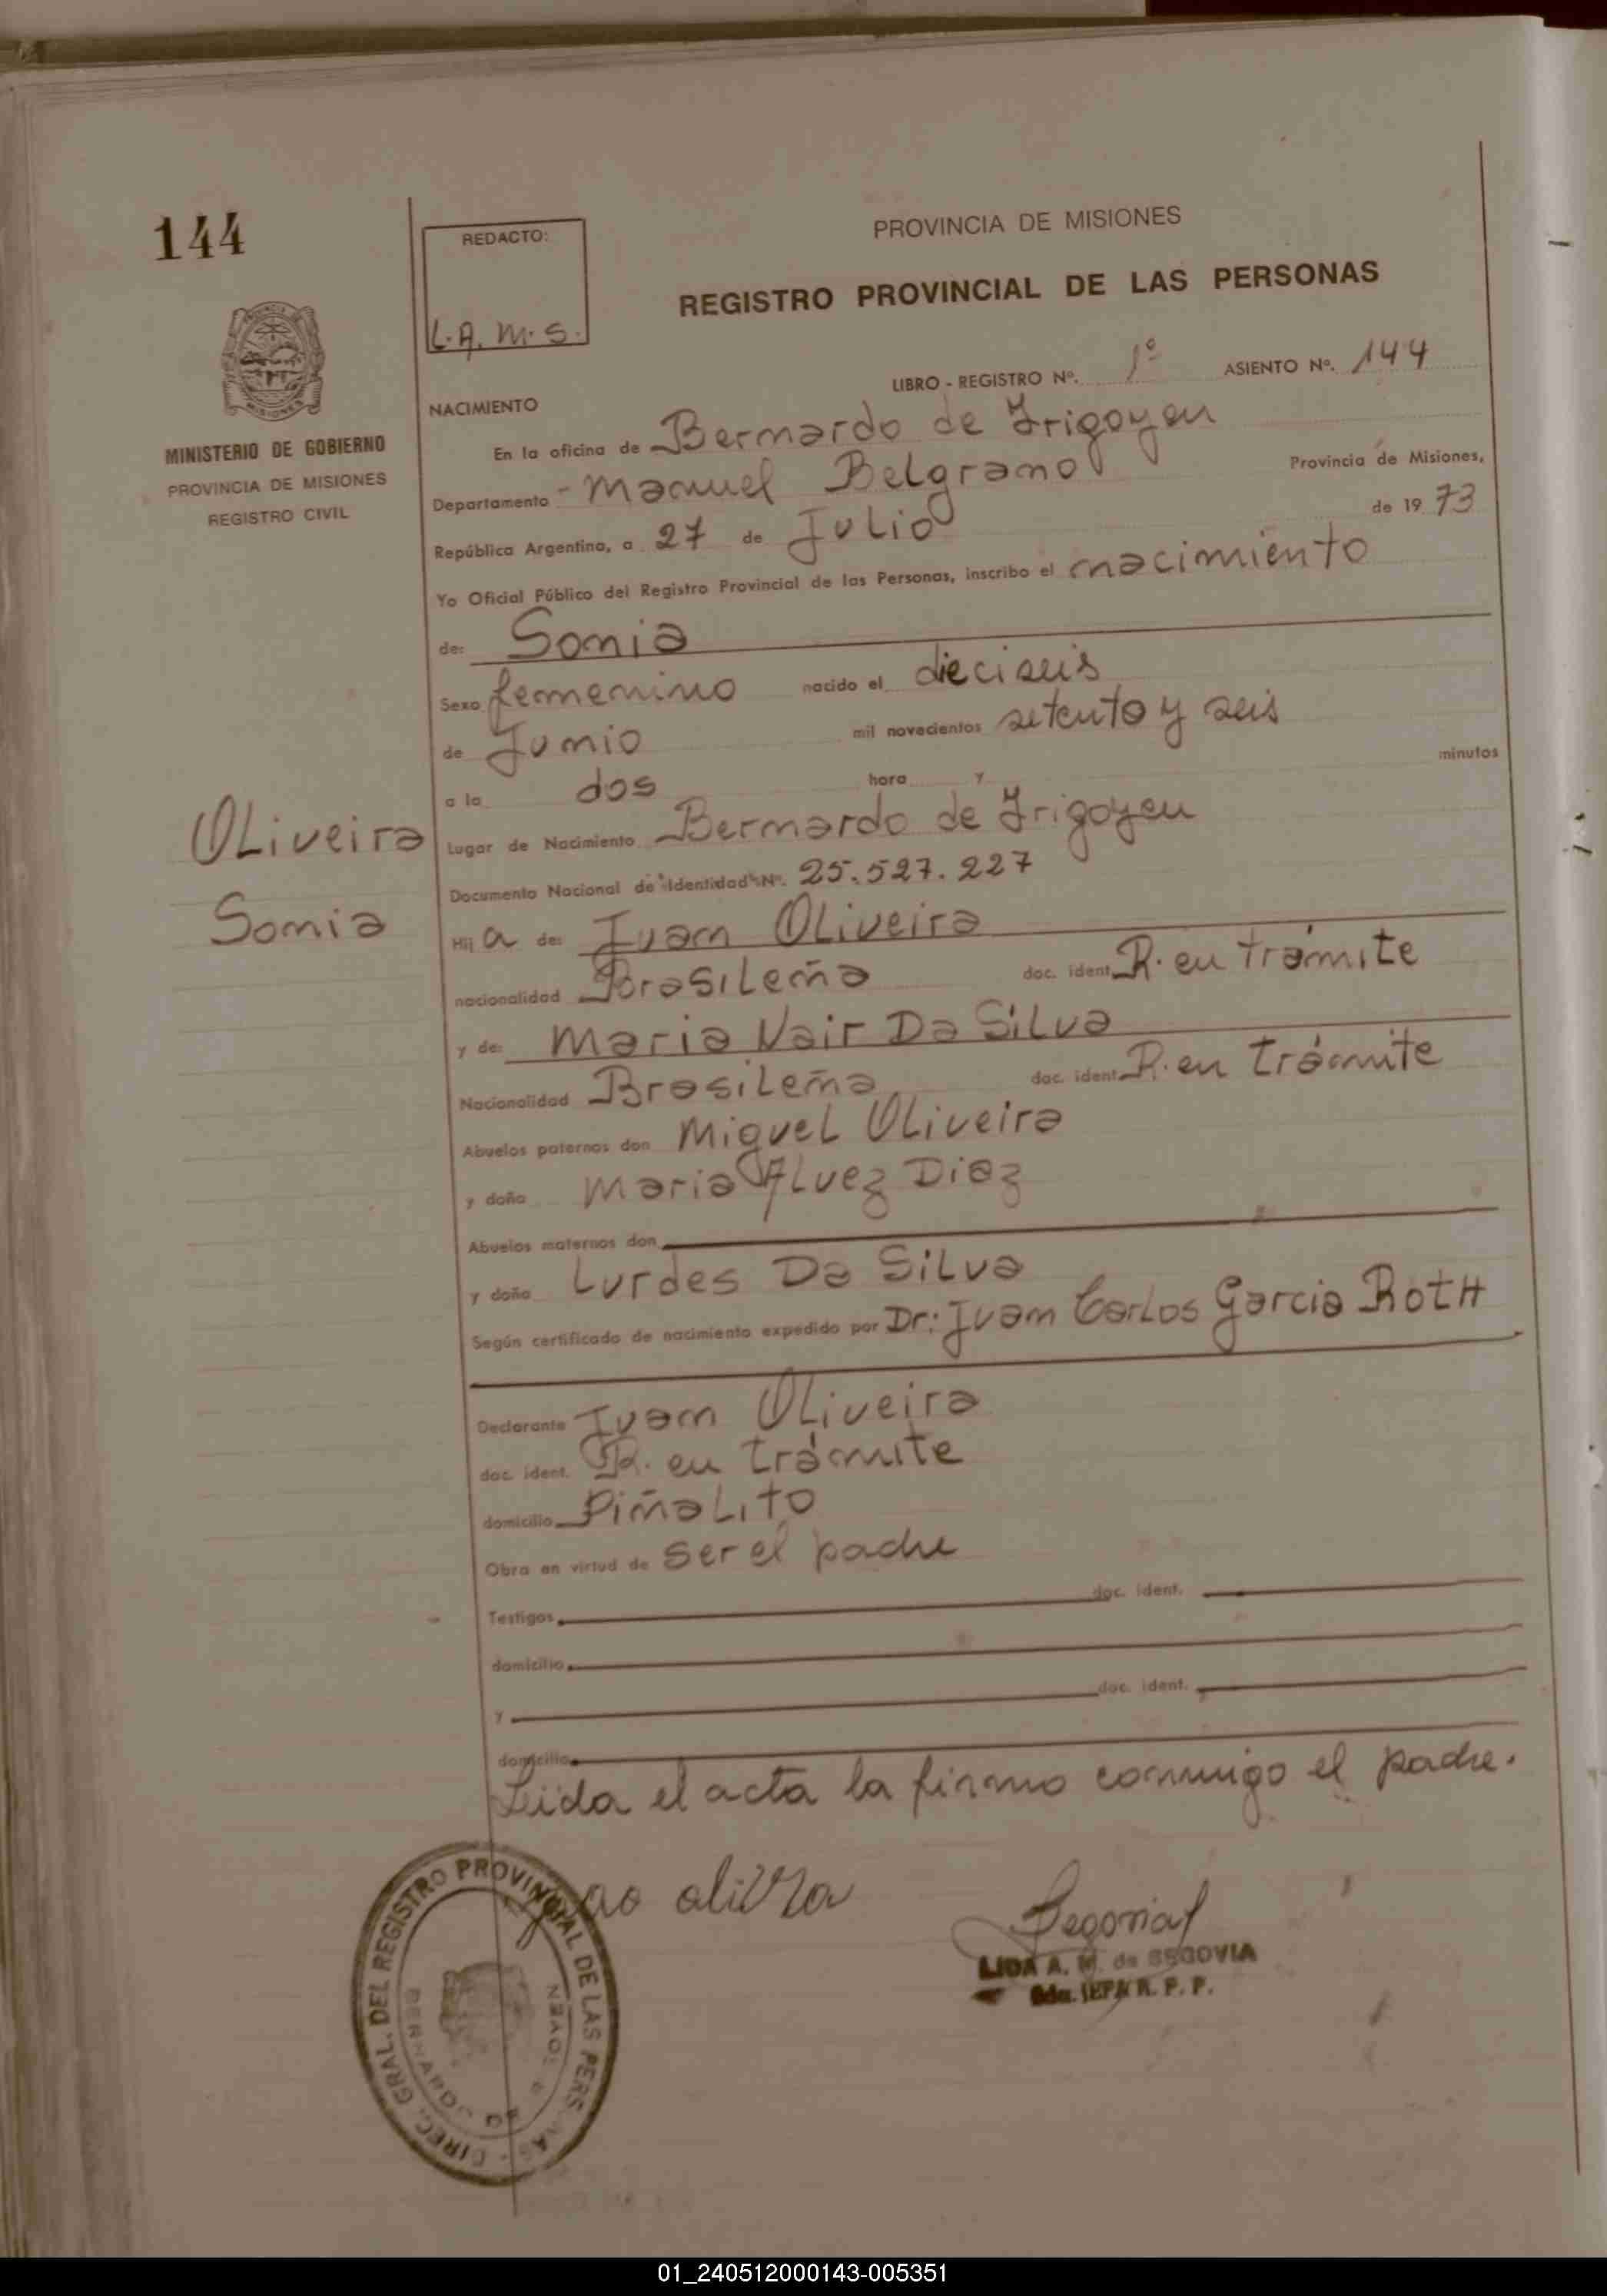 144
REDACTO:
L.A.M.S.
PROVINCIA DE MISIONES
REGISTRO PROVINCIAL DE LAS PERSONAS
MINISTERIO DE GOBIERNO
PROVINCIA DE MISIONES
REGISTRO CIVIL
LIBRO - REGISTRO Nº. 1º ASIENTO Nº. 144
NACIMIENTO
En la oficina de Bernardo de Irigoyen
Departamento - Manuel Belgrano Provincia de Misiones,
República Argentina, a 27 de Julio de 1973
Yo Oficial Público del Registro Provincial de las Personas, inscribo el nacimiento
de: Sonia
Sexo femenino nacido el dieciseis
de Junio mil novecientos setenta y seis
a la dos hora y minutos
Oliveira
Sonia
Lugar de Nacimiento Bernardo de Irigoyen
Documento Nacional de Identidad Nº. 25.527.227
Hij a de: Juan Oliveira
nacionalidad Brasileña doc. ident. R. en trámite
y de: Maria Nair Da Silva
Nacionalidad Brasileña doc. ident. R. en trámite
Abuelos paternos don Miguel Oliveira
y doña Maria Alvez Diaz
Abuelos maternos don
y doña Lurdes Da Silva
Según certificado de nacimiento expedido por Dr: Juan Carlos Garcia Roth
Declarante Juan Oliveira
doc. ident. R. en trámite
domicilio Piñalito
Obra en virtud de ser el padre
Testigos doc. ident.
domicilio
y doc. ident.
domicilio
Leida el acta la firmo conmigo el padre.
DIREC. GRAL. DEL REGISTRO PROVINCIAL DE LAS PERSONAS
BERNARDO DE
LIDA A. M. de SEGOVIA
R. P. P.
01_240512000143-005351